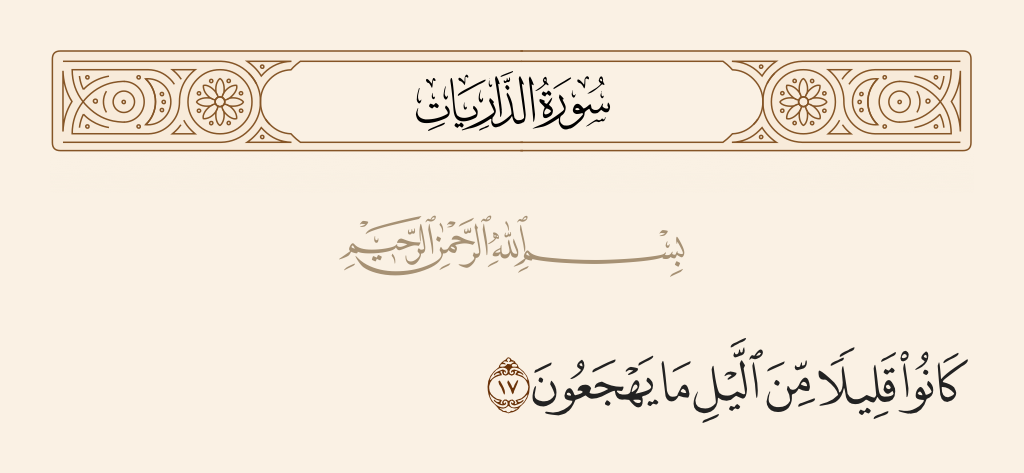 سُورَةُ الذَّارِيَاتِ
بِسْمِ ٱللَّهِ ٱلرَّحْمَٰنِ ٱلرَّحِيمِ
كَانُوا۟ قَلِيلًا مِّنَ ٱلَّيْلِ مَا يَهْجَعُونَ ١٧